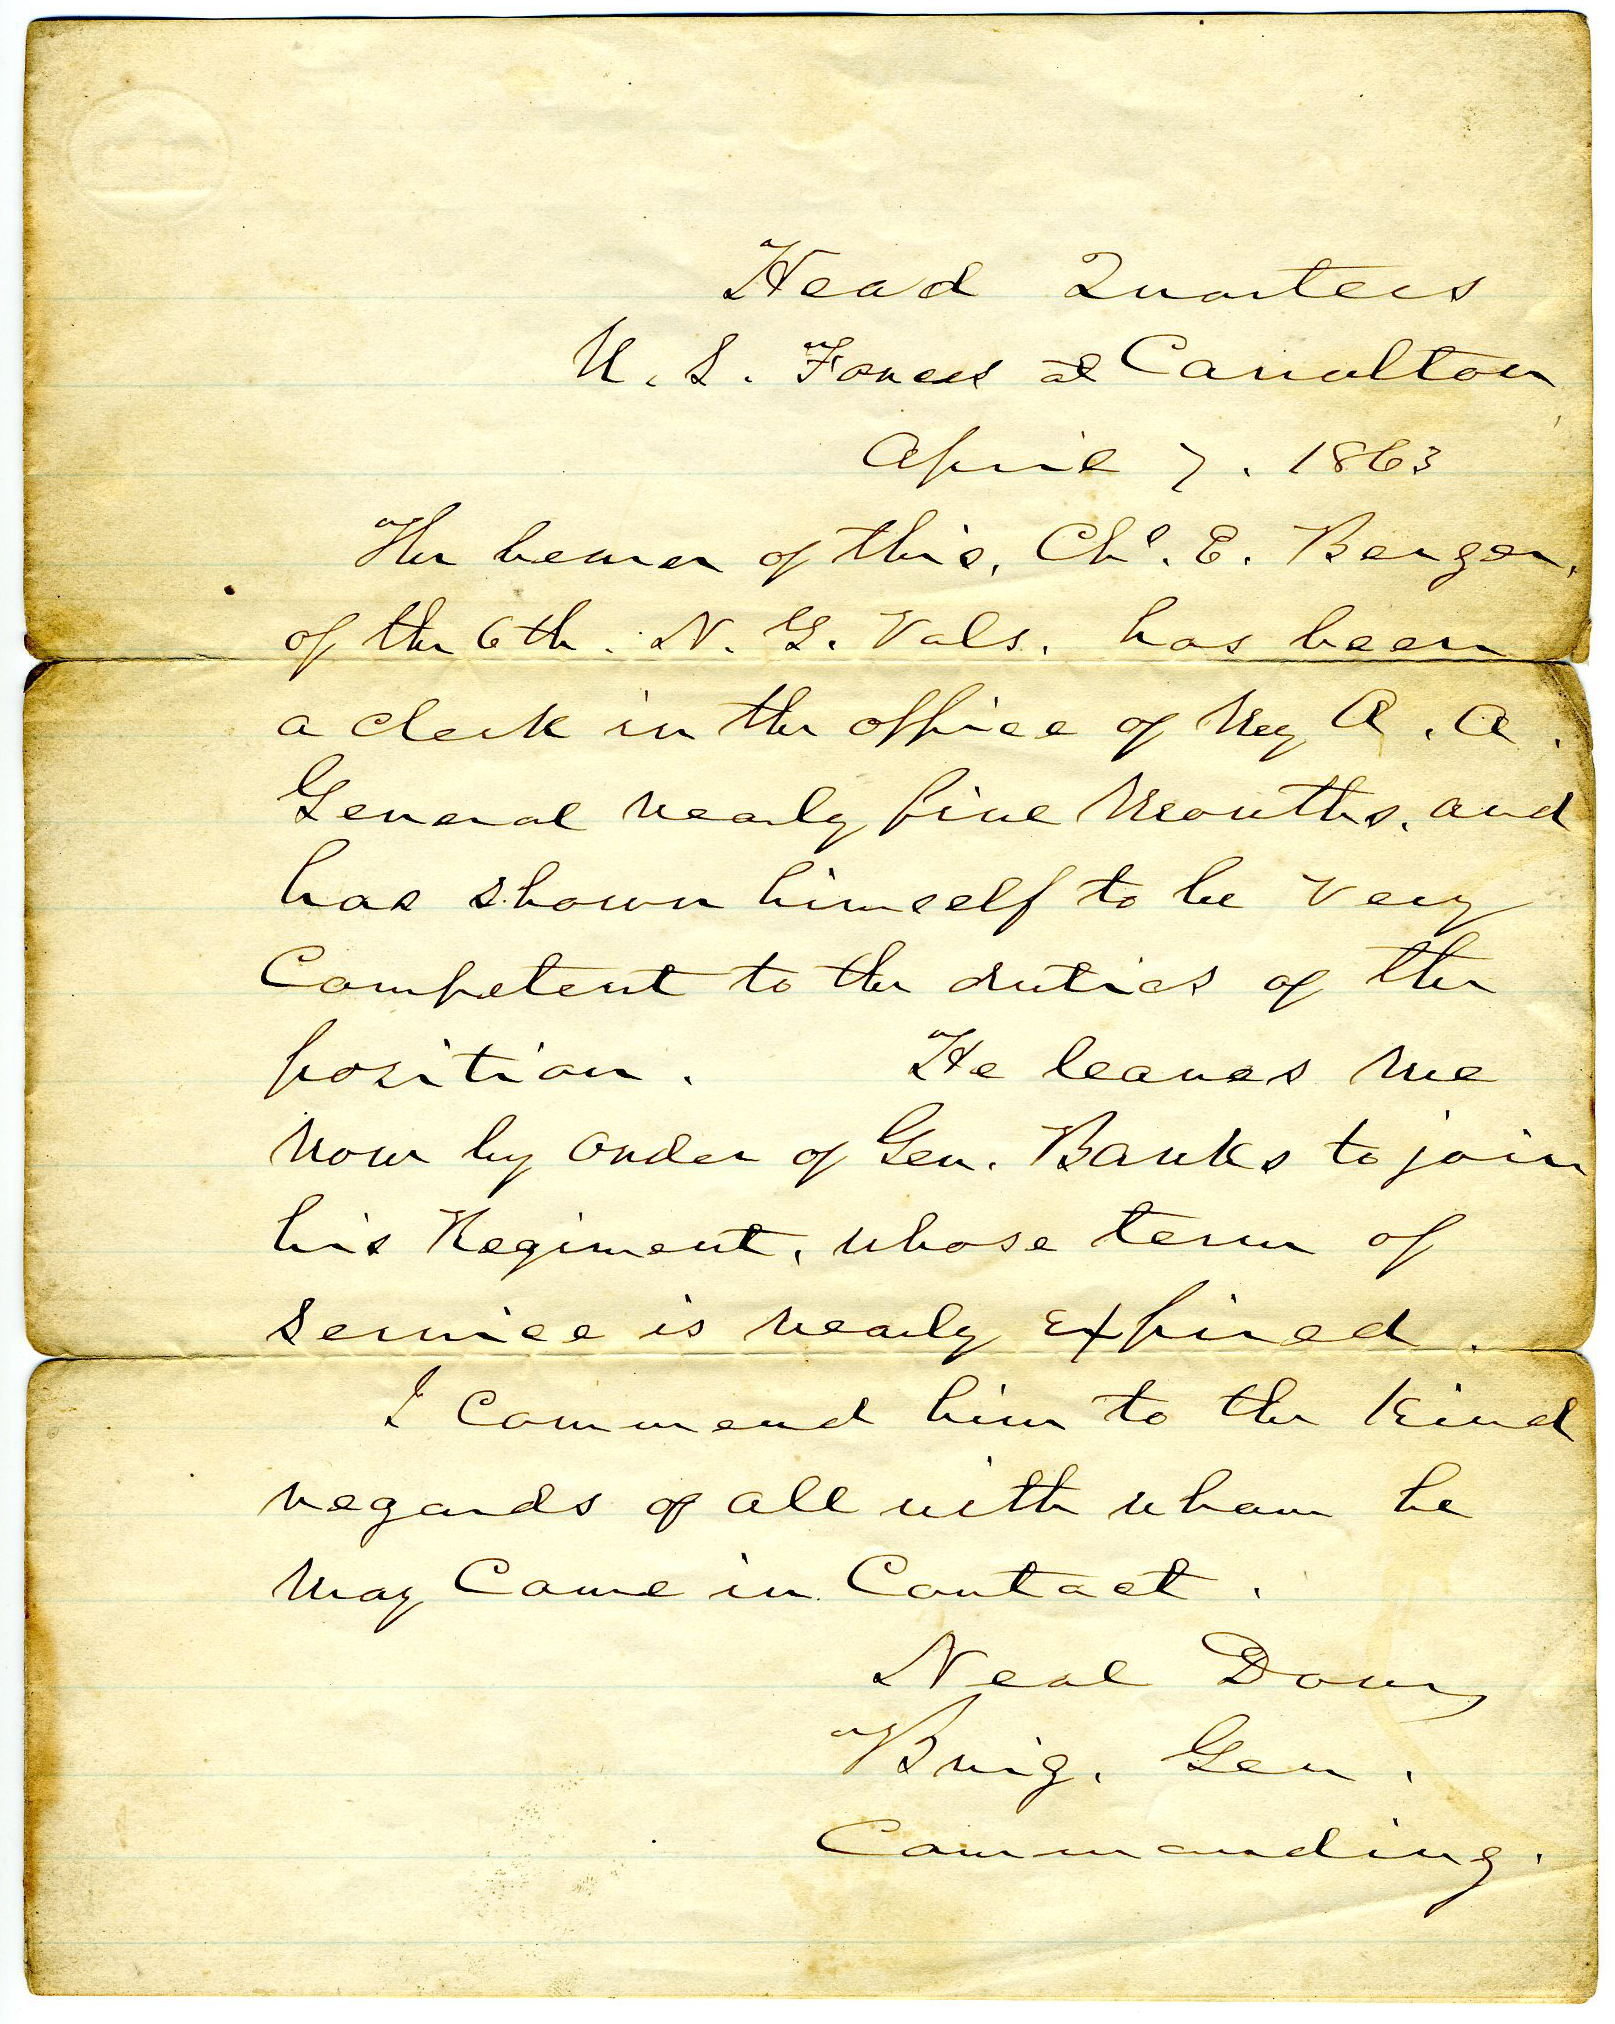 Head Quarters
U. S. Forces at Carrolton
April 7. 1863
The bearer of this, Chs. E. Berger,
of the 6th. N. Y. Vols. has been
a clerk in the office of my A. A.
General nearly five months, and
has shown himself to be very
Competent to the duties of the
position. He leaves me
now by order of Gen. Banks to join
his Regiment, whose term of
service is nearly expired.
I commend him to the kind
regards of all with whom he
may Come in Contact.
Neal Dow,
Brig. Gen.
Commanding.